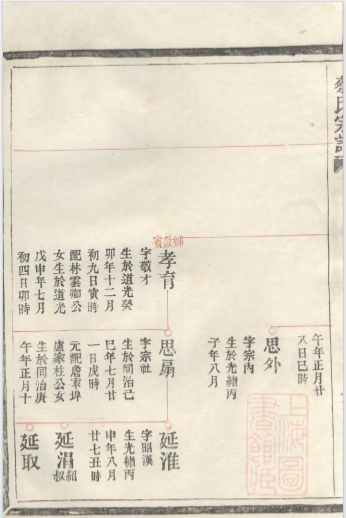 蔡氏宗譜
午年正月廿
八日巳時
思外
字宗內
生於光緒丙
子年八月
鄉飲賓
孝育
字敬才
生於道光癸
卯年十二月
初九日寅時
配林雲卿公
女生於道光
戊申年七月
初四日卯時
思扇
字宗社
生於同治己
巳年七月廿
一日戌時
元配詹家埠
盧家桂公女
生於同治庚
午年正月十
延淮
字昭漢
生光緒丙
申年八月
廿七丑時
延涓
紹叔
延取
上海圖書館藏